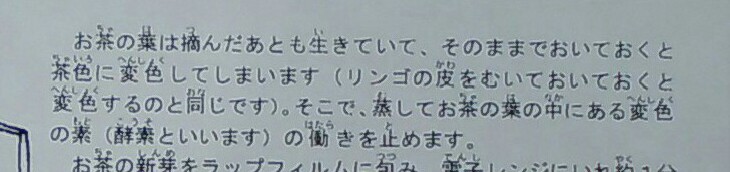 お茶の葉は摘んだあとも生きていて、そのままでおいておくと
茶色に変色してしまいます（リンゴの皮をむいておいておくと
変色するのと同じです）。そこで、蒸してお茶の葉の中にある変色
の素（酵素といいます）の働きを止めます。
お茶の新芽をラップフィルムに包み、電子レンジにいれ約1分